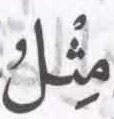 مِثْلُ